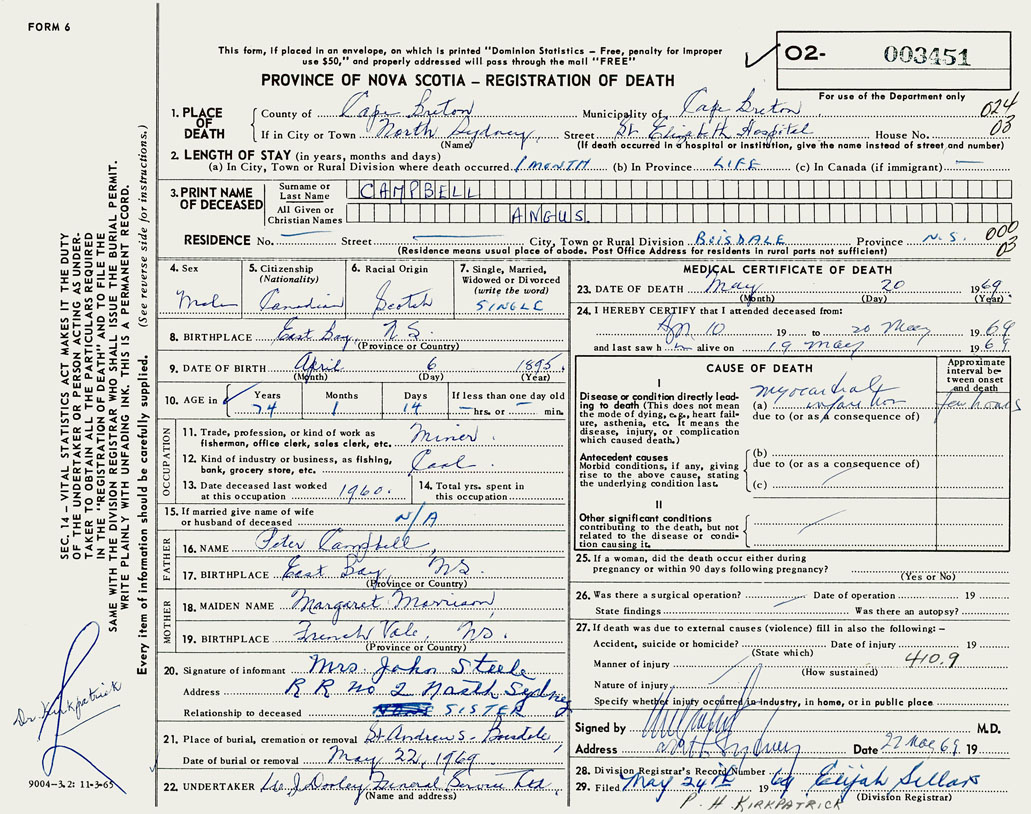 FORM 6
This form, if placed in an envelope, on which is printed "Dominion Statistics – Free, penalty for improper
use $50," and properly addressed will pass through the mail "FREE"
PROVINCE OF NOVA SCOTIA – REGISTRATION OF DEATH
O2- 003451
For use of the Department only
024
03
1. PLACE OF DEATH
County of Cape Breton Municipality of Cape Breton
If in City or Town North Sydney Street St. Elizabeth Hospital House No.
(Name) (If death occurred in a hospital or institution, give the name instead of street and number)
2. LENGTH OF STAY (in years, months and days)
(a) In City, Town or Rural Division where death occurred 1 MONTH (b) In Province LIFE (c) In Canada (if immigrant) —
3. PRINT NAME OF DECEASED
Surname or Last Name CAMPBELL
All Given or Christian Names ANGUS.
RESIDENCE No. — Street — City, Town or Rural Division BOISDALE Province N.S.
(Residence means usual place of abode. Post Office Address for residents in rural parts not sufficient)
000
03
4. Sex
Male
5. Citizenship
(Nationality)
Canadian
6. Racial Origin
Scotch
7. Single, Married,
Widowed or Divorced
(write the word)
SINGLE
8. BIRTHPLACE East Bay, N.S.
(Province or Country)
9. DATE OF BIRTH April 6 1895.
(Month) (Day) (Year)
10. AGE in Years Months Days If less than one day old
74 1 14 — hrs. or — min.
OCCUPATION
11. Trade, profession, or kind of work as
fisherman, office clerk, sales clerk, etc. Miner
12. Kind of industry or business, as fishing,
bank, grocery store, etc. Coal
13. Date deceased last worked
at this occupation 1960.
14. Total yrs. spent in
this occupation
15. If married give name of wife
or husband of deceased N/A
FATHER
16. NAME Peter Campbell,
17. BIRTHPLACE East Bay, NS.
(Province or Country)
MOTHER
18. MAIDEN NAME Margaret Morrison,
19. BIRTHPLACE French Vale, NS.
(Province or Country)
20. Signature of informant Mrs. John Steele
Address R R No 2 North Sydney
Relationship to deceased SISTER
21. Place of burial, cremation or removal St Andrews - Boisdale
Date of burial or removal May 22, 1969
22. UNDERTAKER W J Dooley Funeral Service Ltd.
(Name and address)
MEDICAL CERTIFICATE OF DEATH
23. DATE OF DEATH May 20 1969
(Month) (Day) (Year)
24. I HEREBY CERTIFY that I attended deceased from:
Ap 10 19 to 20 May 1969
and last saw h im alive on 19 May 1969.
CAUSE OF DEATH
Approximate
interval be-
tween onset
and death
I
Disease or condition directly lead-
ing to death (This does not mean
the mode of dying, e.g., heart fail-
ure, asthenia, etc. It means the
disease, injury, or complication
which caused death.)
(a) myocardial infarction few hours
due to (or as a consequence of)
Antecedent causes
Morbid conditions, if any, giving
rise to the above cause, stating
the underlying condition last.
(b)
due to (or as a consequence of)
(c)
II
Other significant conditions
contributing to the death, but not
related to the disease or condi-
tion causing it.
25. If a woman, did the death occur either during
pregnancy or within 90 days following pregnancy?
(Yes or No)
26. Was there a surgical operation? — Date of operation 19
State findings Was there an autopsy?
27. If death was due to external causes (violence) fill in also the following: –
Accident, suicide or homicide? Date of injury 19
(State which)
Manner of injury 410.9
(How sustained)
Nature of injury
Specify whether injury occurred in industry, in home, or in public place
Signed by M.D.
Address North Sydney Date 22 May 69 19
28. Division Registrar's Record Number
29. Filed May 24th 1969 Elijah Sellars
(Division Registrar)
P. H. KIRKPATRICK
SEC. 14 – VITAL STATISTICS ACT MAKES IT THE DUTY
OF THE UNDERTAKER OR PERSON ACTING AS UNDER-
TAKER TO OBTAIN ALL THE PARTICULARS REQUIRED
IN THE "REGISTRATION OF DEATH" AND TO FILE THE
SAME WITH THE DIVISION REGISTRAR WHO SHALL ISSUE THE BURIAL PERMIT.
WRITE PLAINLY WITH UNFADING INK. THIS IS A PERMANENT RECORD.
Every item of information should be carefully supplied. (See reverse side for instructions.)
Dr. Kirkpatrick
9004-3.2: 11-3-65